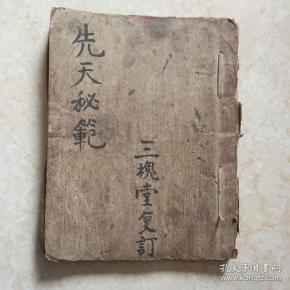 先天秘範
三槐堂复訂
孔夫子旧书网